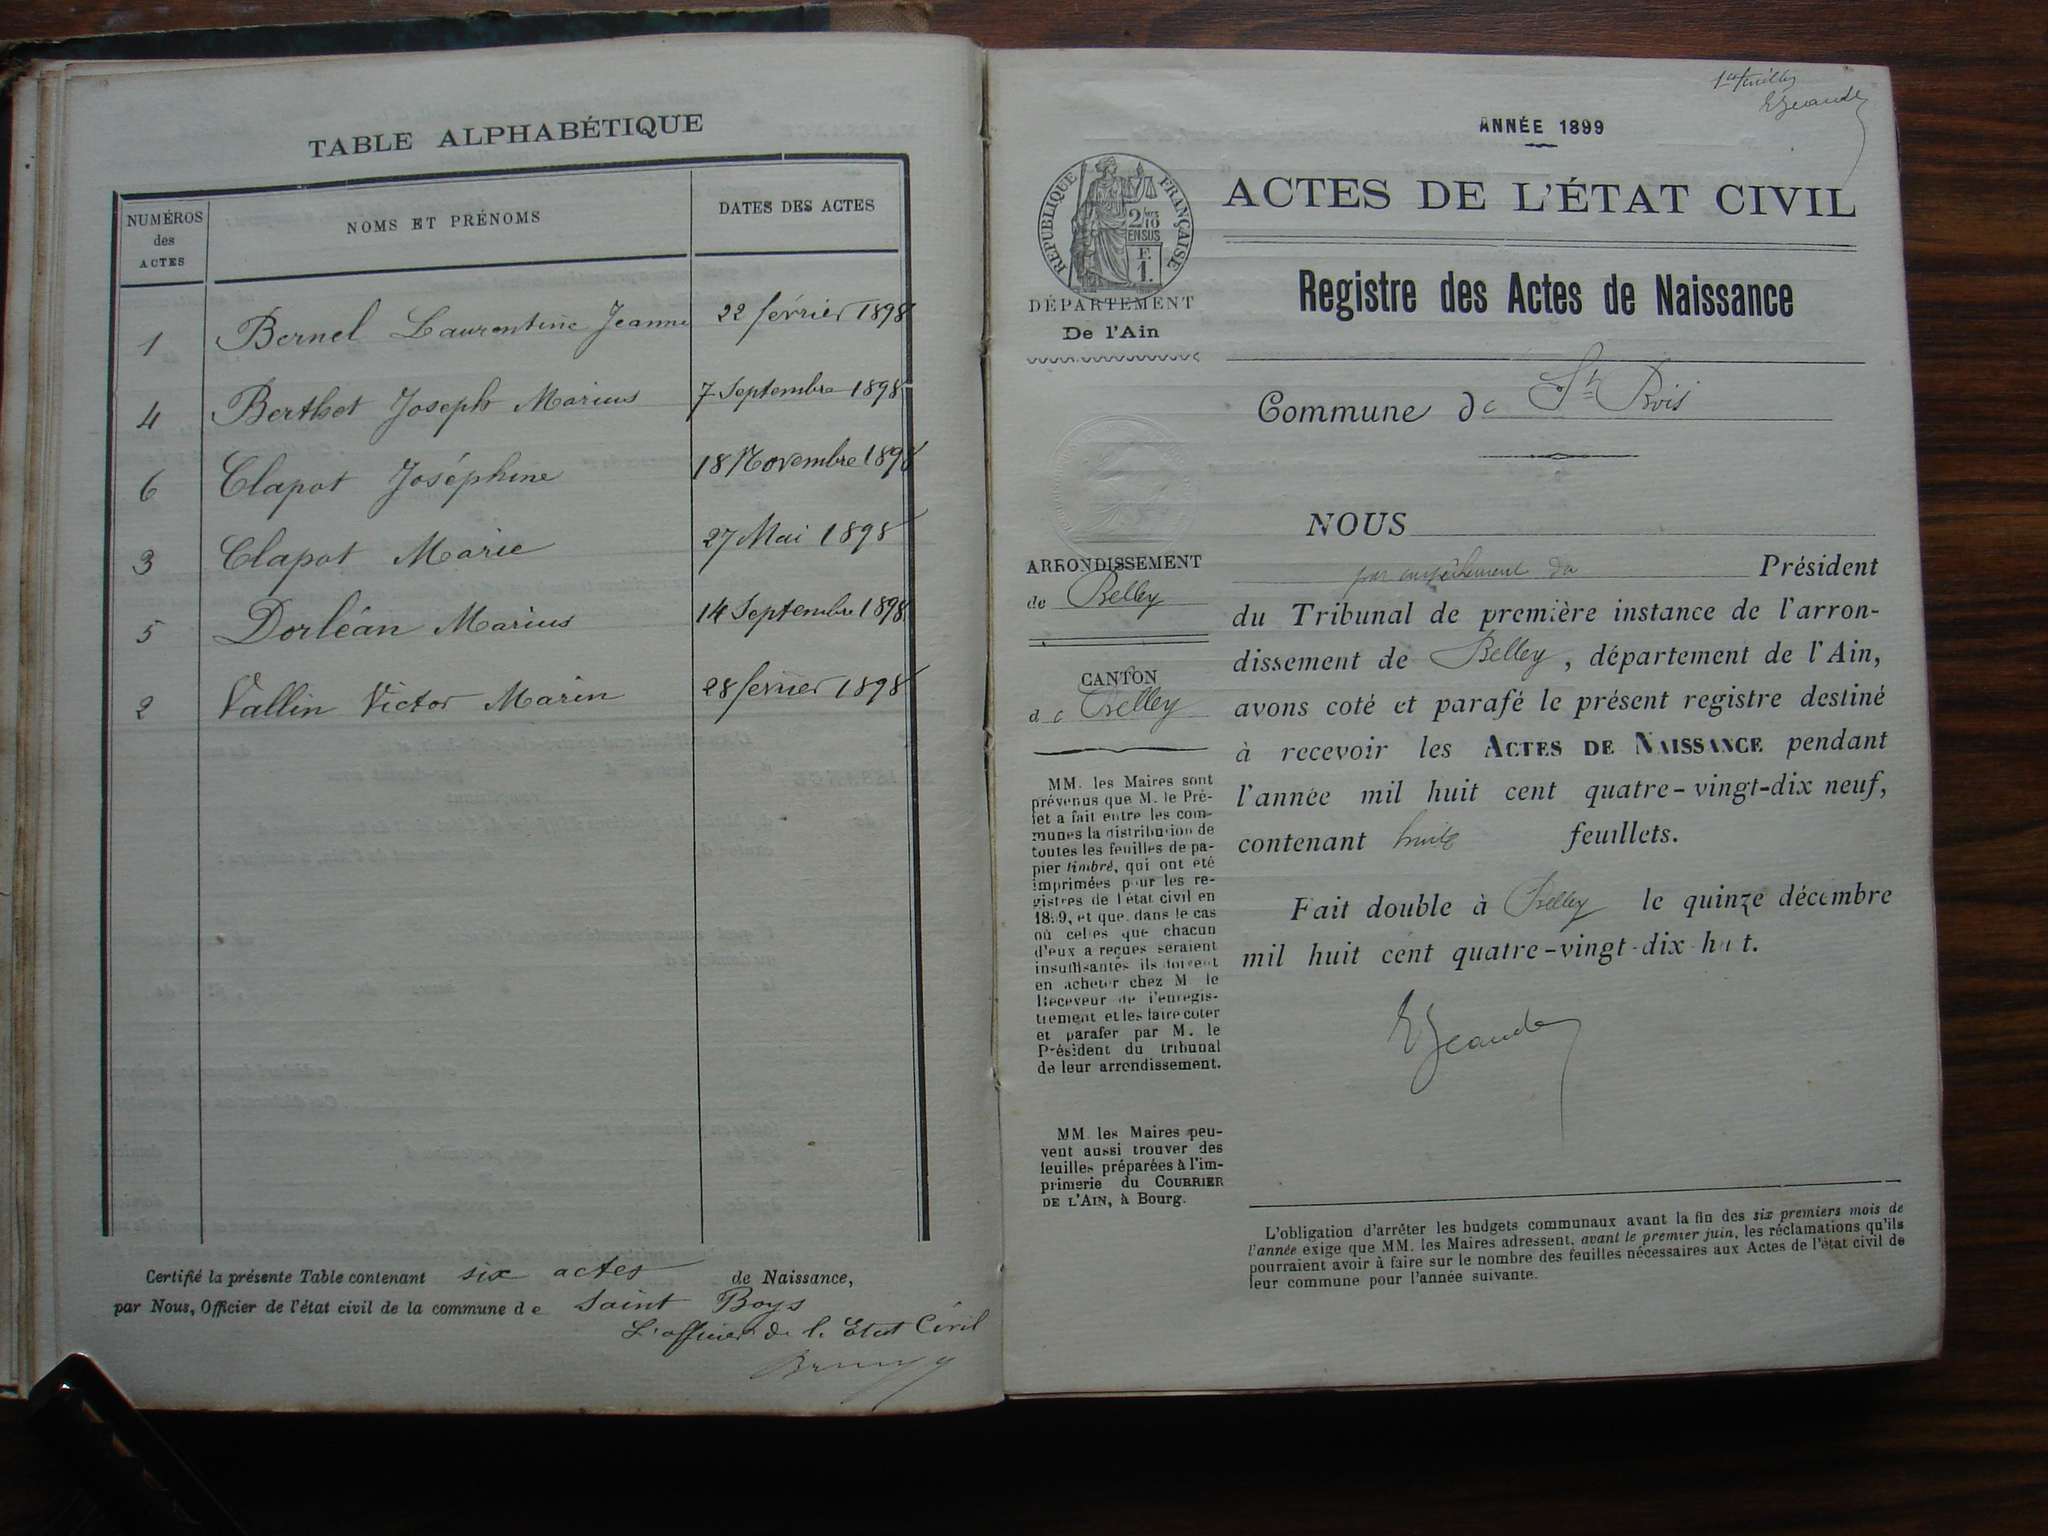 TABLE ALPHABÉTIQUE
NUMÉROS
des
ACTES
NOMS ET PRÉNOMS
DATES DES ACTES
1 Bernel Laurentine Jeanne 22 février 1898
4 Berthet Joseph Marius 7 Septembre 1898
6 Clapot Joséphine 18 Novembre 1898
3 Clapot Marie 27 Mai 1898
5 Dorléan Marius 14 Septembre 1898
2 Vallin Victor Marin 28 fevrier 1898
Certifié la présente Table contenant six actes de Naissance,
par Nous, Officier de l'état civil de la commune de Saint Boys
L'officier de l'Etat Civil
ANNÉE 1899
RÉPUBLIQUE FRANÇAISE
2/10
EN SUS
F.
1.
ACTES DE L'ÉTAT CIVIL
DÉPARTEMENT
De l'Ain
Registre des Actes de Naissance
Commune de St Bois
ARRONDISSEMENT
de Belley
CANTON
de Belley
MM. les Maires sont
prévenus que M. le Pré-
fet a fait entre les com-
munes la distribution de
toutes les feuilles de pa-
pier timbré, qui ont été
imprimées pour les re-
gistres de l'état civil en
1899, et que dans le cas
où celles que chacun
d'eux a reçues seraient
insuffisantes ils doivent
en acheter chez M. le
Receveur de l'enregis-
trement et les faire coter
et parafer par M. le
Président du tribunal
de leur arrondissement.
MM. les Maires peu-
vent aussi trouver des
feuilles préparées à l'im-
primerie du COURRIER
DE L'AIN, à Bourg.
NOUS
par empêchement du Président
du Tribunal de première instance de l'arron-
dissement de Belley, département de l'Ain,
avons coté et parafé le présent registre destiné
à recevoir les ACTES DE NAISSANCE pendant
l'année mil huit cent quatre-vingt-dix neuf,
contenant huit feuillets.
Fait double à Belley le quinze décembre
mil huit cent quatre-vingt-dix-huit.
L'obligation d'arrêter les budgets communaux avant la fin des six premiers mois de
l'année exige que MM. les Maires adressent, avant le premier juin, les réclamations qu'ils
pourraient avoir à faire sur le nombre des feuilles nécessaires aux Actes de l'état civil de
leur commune pour l'année suivante.